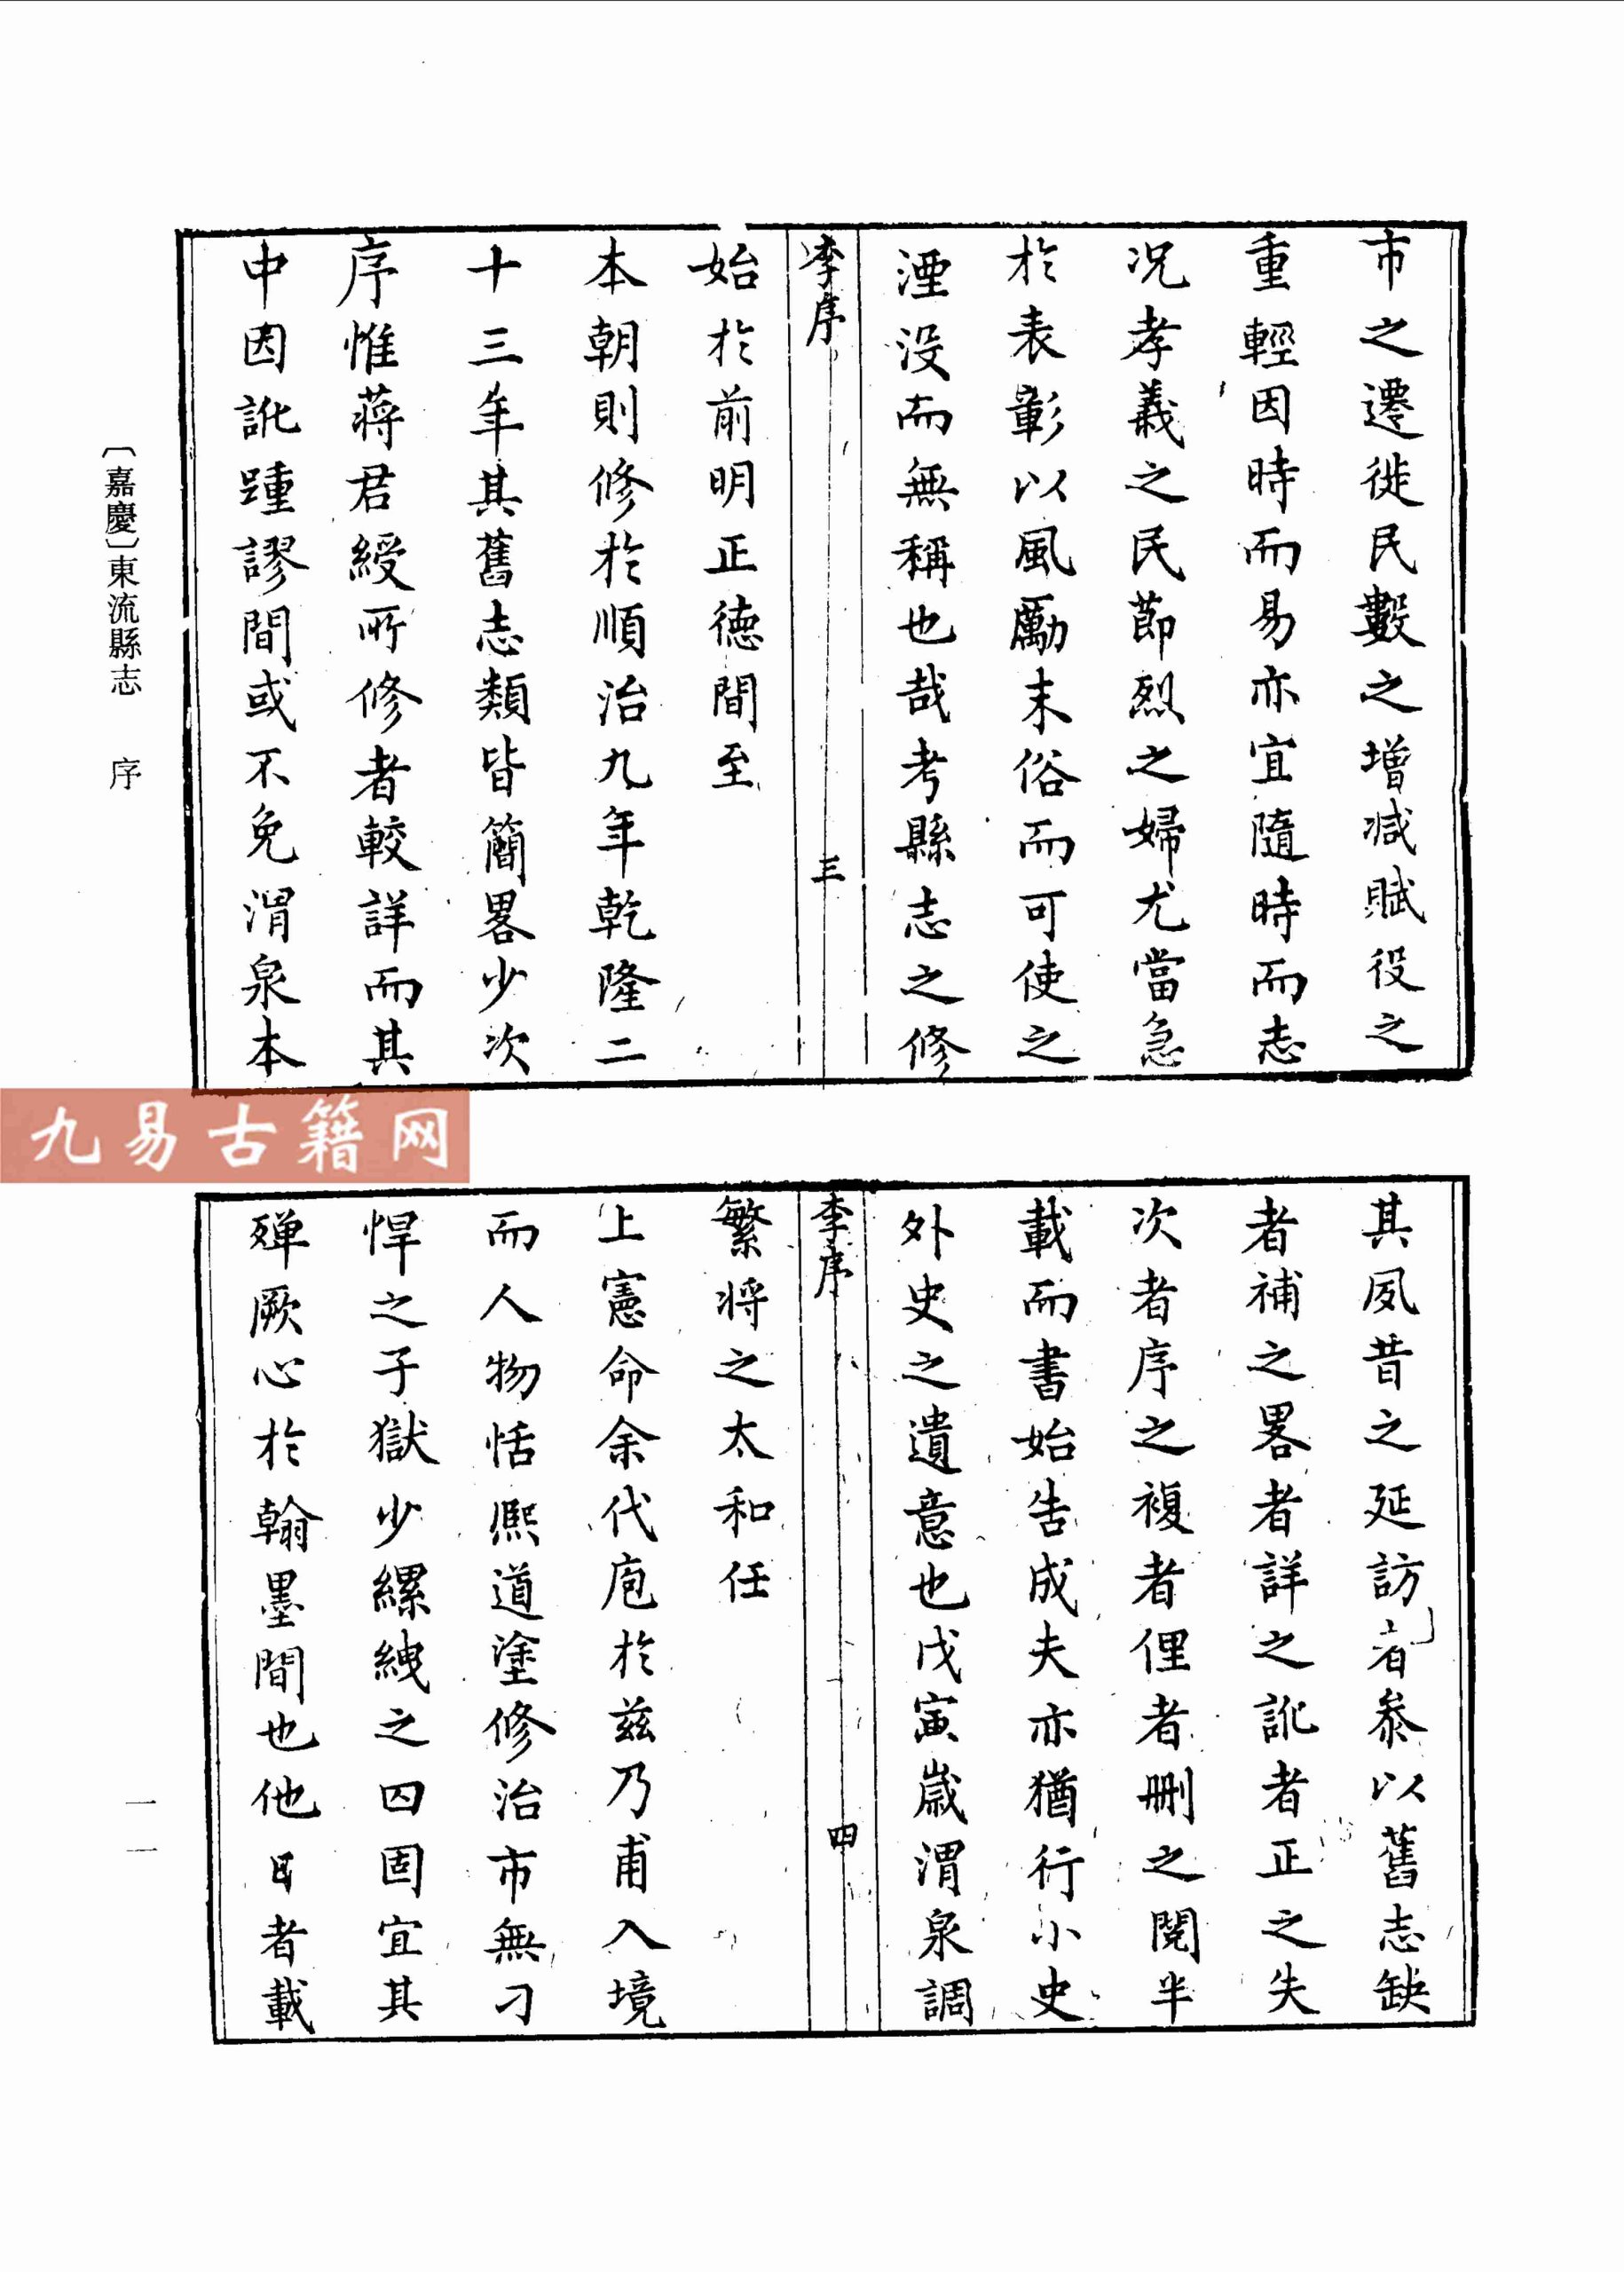 市之遷徙民數之增减賦役之
重輕因時而易亦宜隨時而志
况孝義之民節烈之婦尤當急
於表彰以風勵末俗而可使之
湮没而無稱也哉考縣志之修
李序
三
始於前明正德間至
本朝則修於順治九年乾隆二
十三年其舊志類皆簡畧少次
序惟蔣君綬所修者較詳而其
中因訛踵謬間或不免渭泉本
其夙昔之延訪者叅以舊志缺
者補之畧者詳之訛者正之失
次者序之複者俚者删之閱半
載而書始告成夫亦猶行小史
外史之遺意也戊寅歲渭泉調
李序
四
繁將之太和任
上憲命余代庖於兹乃甫入境
而人物恬熙道塗修治市無刁
悍之子獄少縲絏之囚固宜其
殫厥心於翰墨間也他日者載
〔嘉慶〕東流縣志 序
一一
九易古籍网